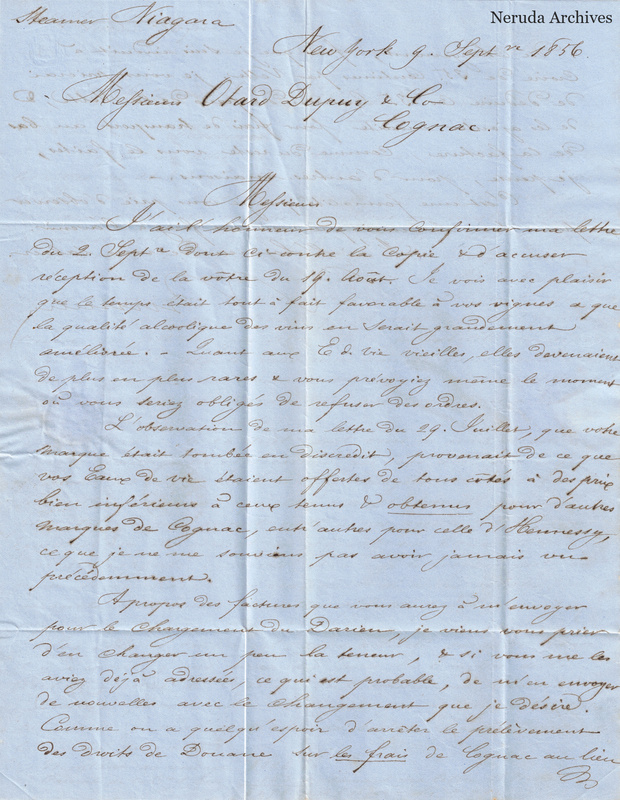 Neruda Archives
Steamer Niagara
New York 9. Septre 1856.
Messieurs Otard Dupuy & Co
Cognac.
Messieurs
J'ai l'honneur de vous confirmer ma lettre
du 2. Septre dont ci-contre la copie & d'accuser
réception de la vôtre du 19. Août. Je vois avec plaisir
que le temps était tout à fait favorable à vos vignes & que
la qualité alcoolique des vins en serait grandement
améliorée. - Quant aux E. d. vie vieilles, elles devenaient
de plus en plus rares & vous prévoyiez même le moment
où vous seriez obligés de refuser des ordres.
L'observation de ma lettre du 29. Juillet, que votre
marque était tombée en discrédit, provenait de ce que
vos Eaux de vie étaient offertes de tous côtés à des prix
bien inférieurs à ceux tenus & obtenus pour d'autres
marques de Cognac, entr'autres pour celle d'Hennessy,
ce que je ne me souviens pas avoir jamais vu
précédemment.
A propos des factures que vous aurez à m'envoyer
pour le chargement du Darien, je viens vous prier
d'en changer un peu la teneur, & si vous me les
aviez déjà adressées, ce qui est probable, de m'en envoyer
de nouvelles avec le changement que je désire.
Comme on a quelqu'espoir d'arrêter le prélèvement
des droits de Douane sur les frais de Cognac au lieu